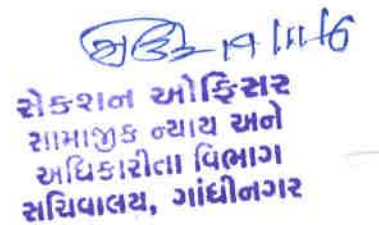 19/11/16
સેકશન ઓફિસર
સામાજીક ન્યાય અને
અધિકારીતા વિભાગ
સચિવાલય, ગાંધીનગર